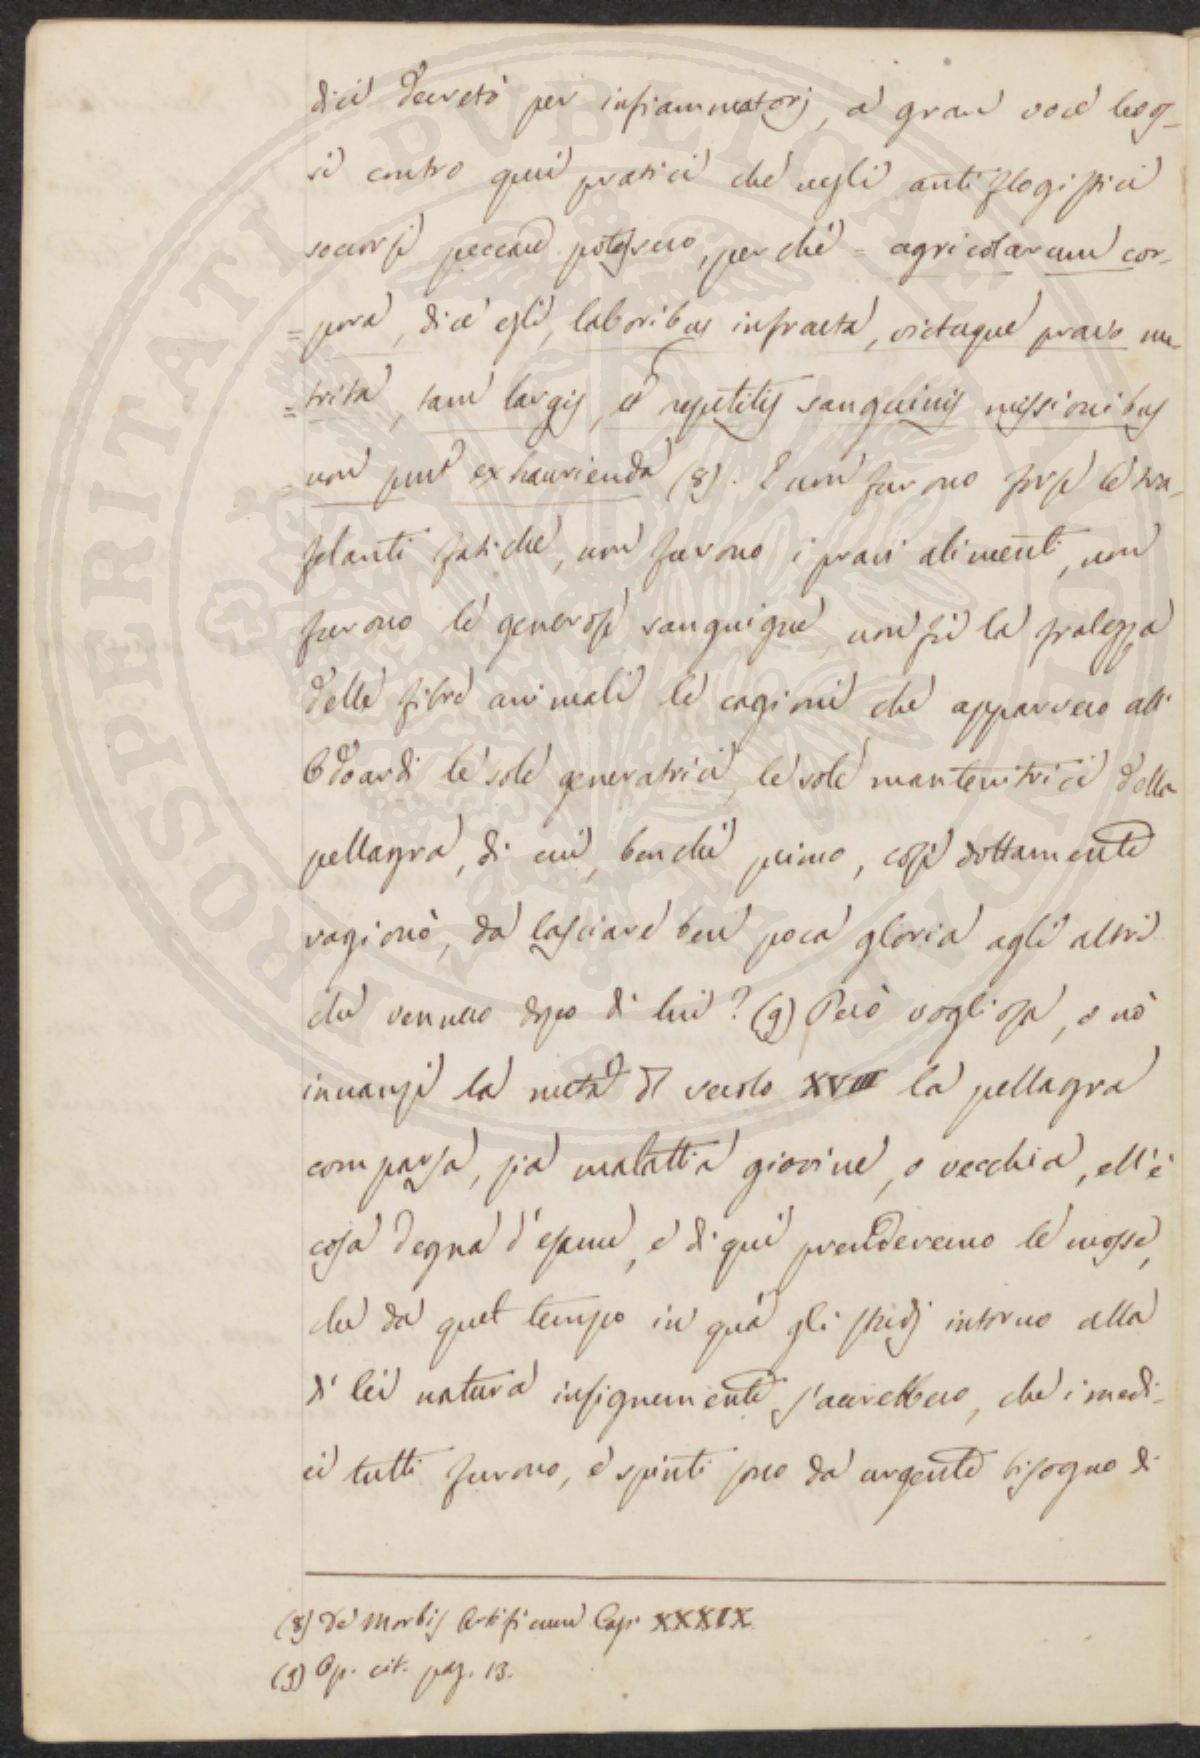 dici decretò per infiammatorj, a gran voce leva-
si contro quei pratici che negli antiflogistici
soccorsi peccare potessero, perchè = agricolarum cor-
= pora, dice egli, laboribus infracta, victuque pravo nu-
= trita, tam largis, et repetitis sanguinis missionibus
= non sunt exhaurienda (8). E non furono forse le tra-
felanti fatiche, non furono i pravi alimenti, non
furono le generose sanguigne, non fù la fralezza
delle fibre animali le cagioni che apparvero all'
Odoardi le sole generatrici, le sole mantenitrici della
pellagra, di cui, benchè primo, così dottamente
ragionò, da lasciare ben poca gloria agli altri
che vennero dopo di lui? (9) Però vogliasi, o nò
innanzi la metà del secolo XVIII la pellagra
comparsa, sia malattia giovine, o vecchia, ell'è
cosa degna d'esame, e di quì prenderemo le mosse,
che da quel tempo in quà gli studj intorno alla
di lei natura insignemente s'accrebbero, che i medi-
ci tutti furono, e spinti sono da urgente bisogno di
(8) De Morbis Artificum Cap. XXXIX
(9) Op. cit. pag. 13.
PROSPERITATI PUBLICAE